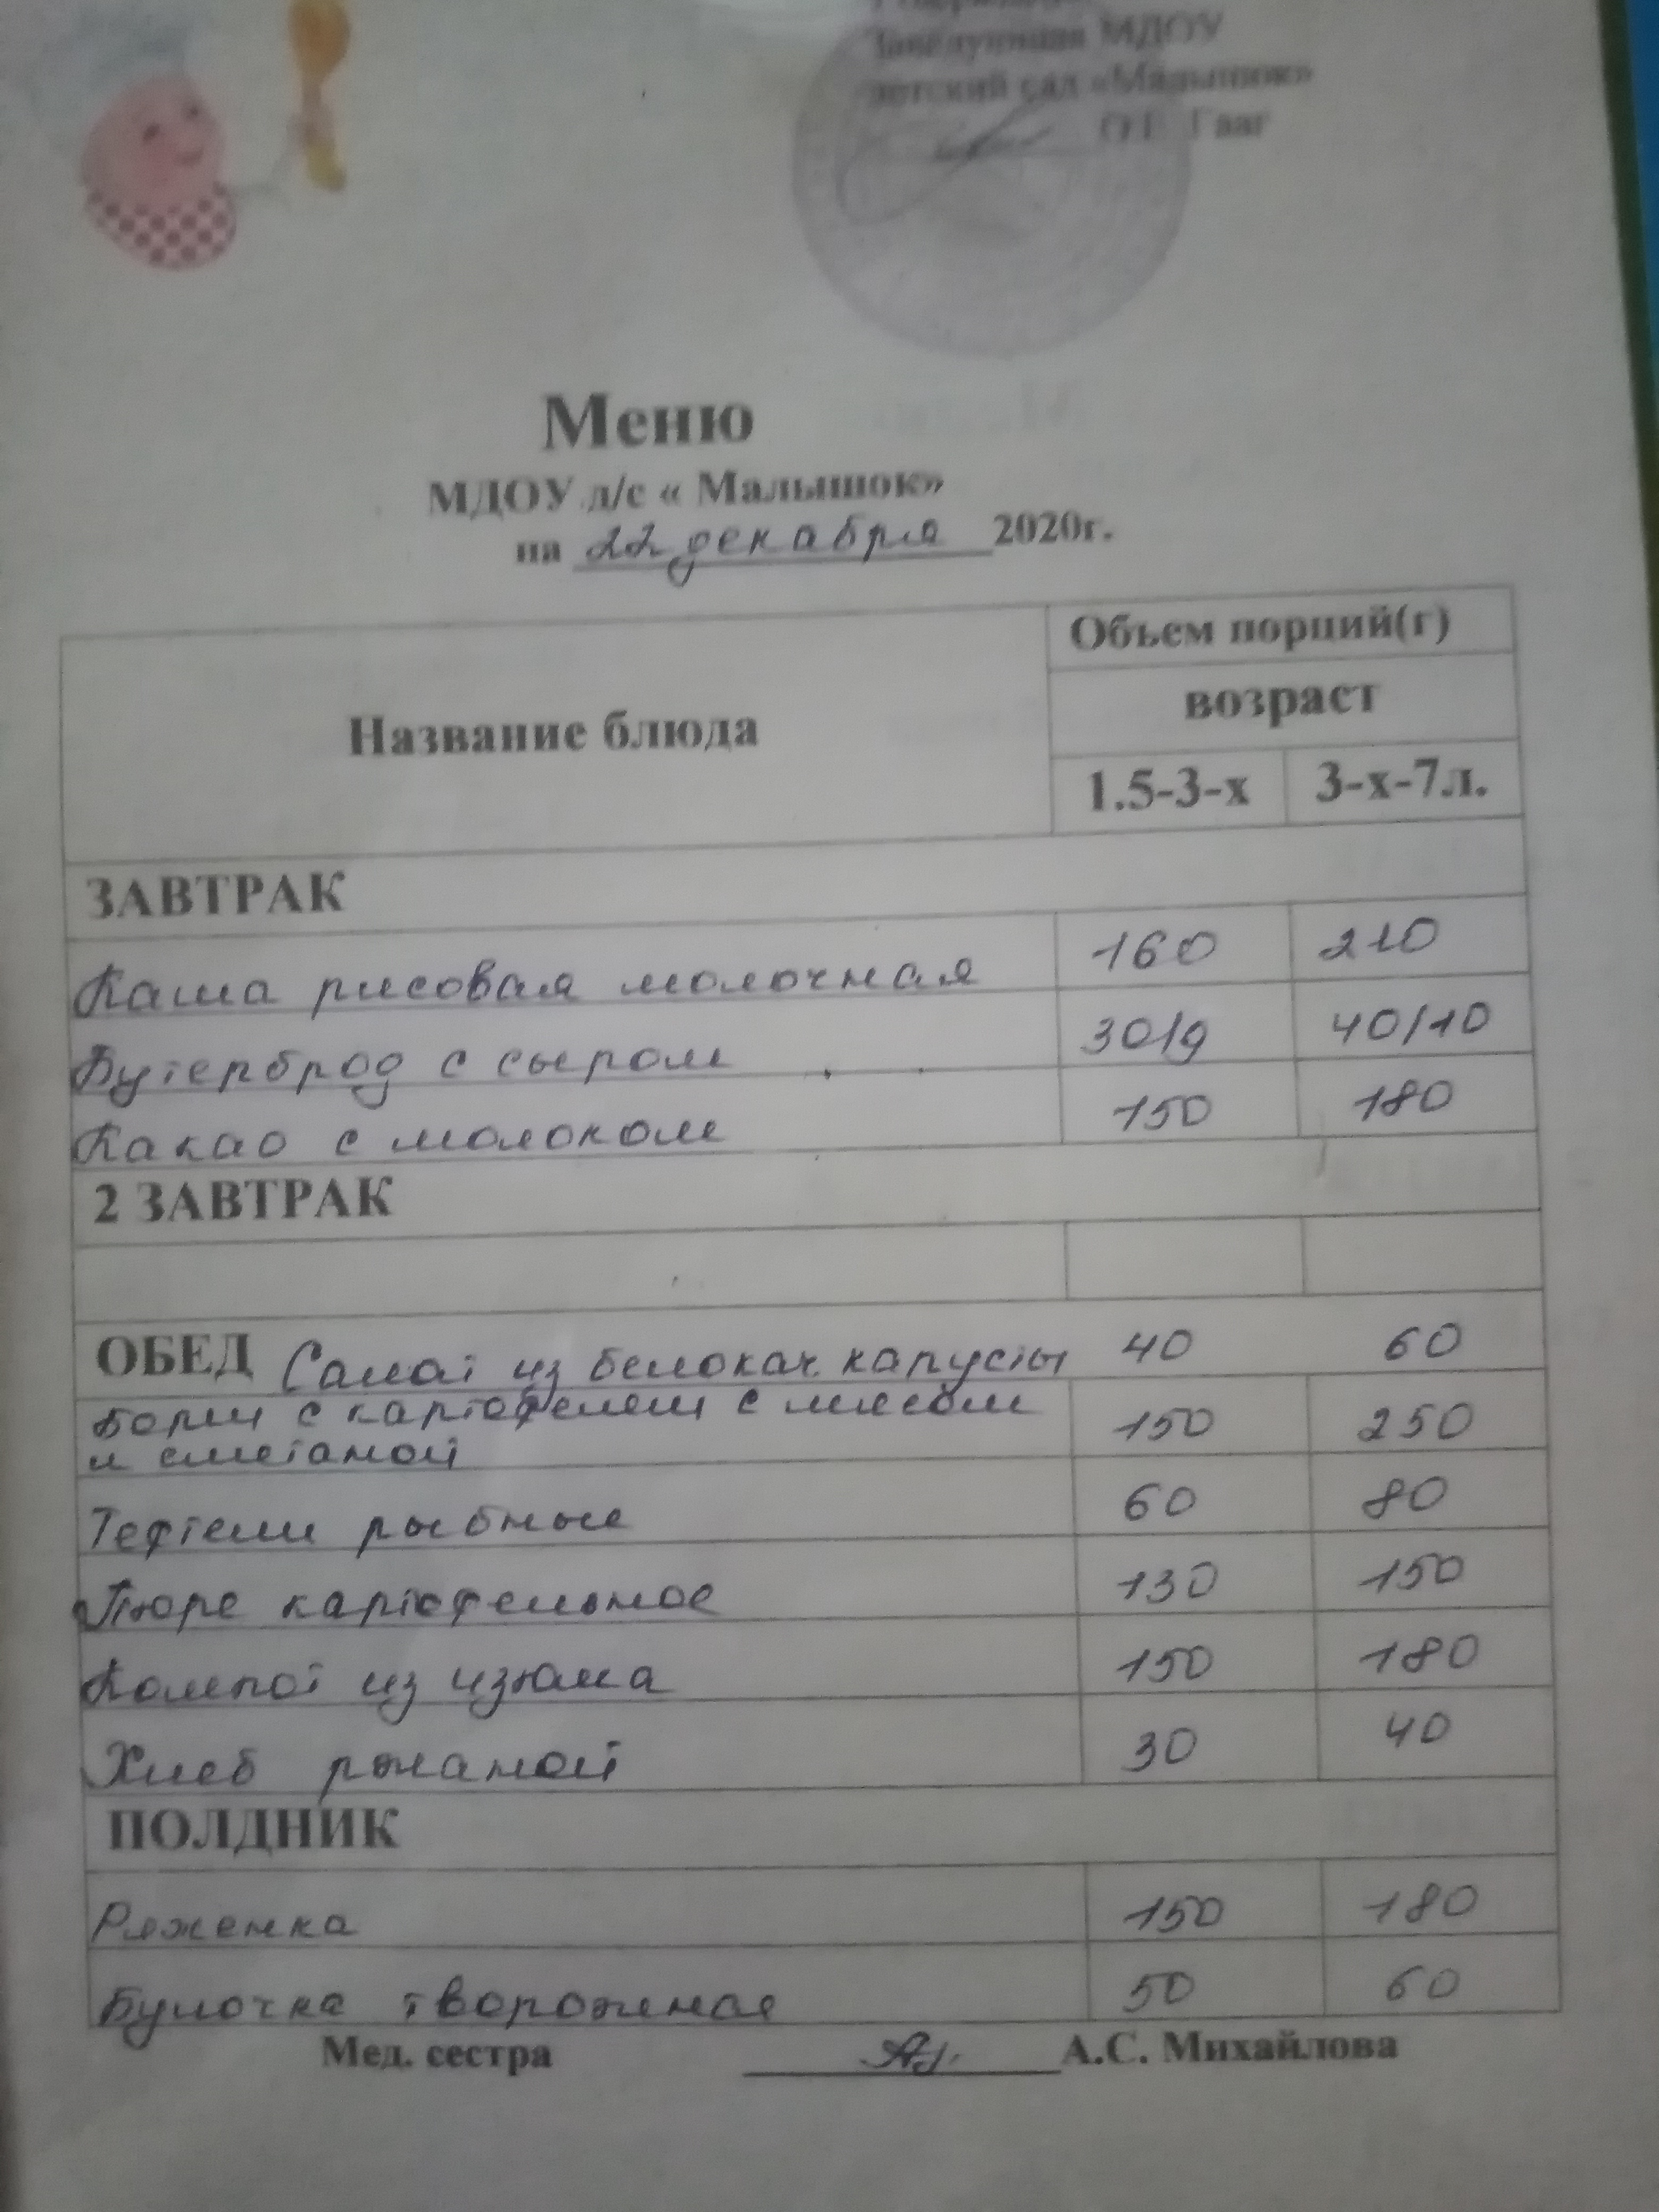 Заведующая МДОУ
детский сад «Малышок»
Гааг
Меню
МДОУ д/с « Малышок»
на 22 декабря 2020г.
Название блюда
Объем порций(г)
возраст
1.5-3-х 3-х-7л.
ЗАВТРАК
Каша рисовая молочная 160 210
Бутерброд с сыром 30/9 40/10
Какао с молоком 150 180
2 ЗАВТРАК
ОБЕД Салат из белокач. капусты 40 60
Борщ с картофелем с мясом 150 250
и сметаной
Тефтели рыбные 60 80
Пюре картофельное 130 150
Компот из изюма 150 180
Хлеб ржаной 30 40
ПОЛДНИК
Ряженка 150 180
Булочка творожная 50 60
Мед. сестра А.С. Михайлова